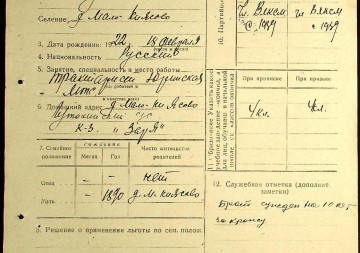 Селение д. Мало-Киясово
3. Дата рождения: 1922 18 февраля
4. Национальность Русский
5. Занятие, специальность и место работы
Тракторист
МТС
6. Домашний адрес д. Мало-Киясово
с/с
К-з. "Заря"
7. Семейное положение
Месяц
Год
Место жительства родителей
Отец — — нет
Мать — 1890 д. М. Киясово
9. Решение о применении льготы по сем. полож.
10. Партийн
Чл. ВЛКСМ
с 1939
чл ВЛКСМ
1939
При приписке
При призыве
4 кл.
4 кл.
12. Служебная отметка (дополнит. заметки)
Брат сужден на 10 лет
за кражу